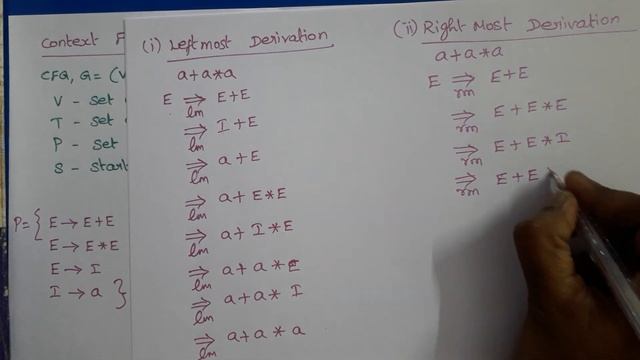 Context F
CFG, G = (V
V - set
T - set
P - set
S - start
P = { E → E+E
E → E*E
E → I
I → a }
(i) Leftmost Derivation
a+a*a
E ⇒lm E+E
⇒lm I+E
⇒lm a+E
⇒lm a+E*E
⇒lm a+I*E
⇒lm a+a*E
⇒lm a+a*I
⇒lm a+a*a
(ii) Right Most Derivation
a+a*a
E ⇒rm E+E
⇒rm E+E*E
⇒rm E+E*I
⇒rm E+E